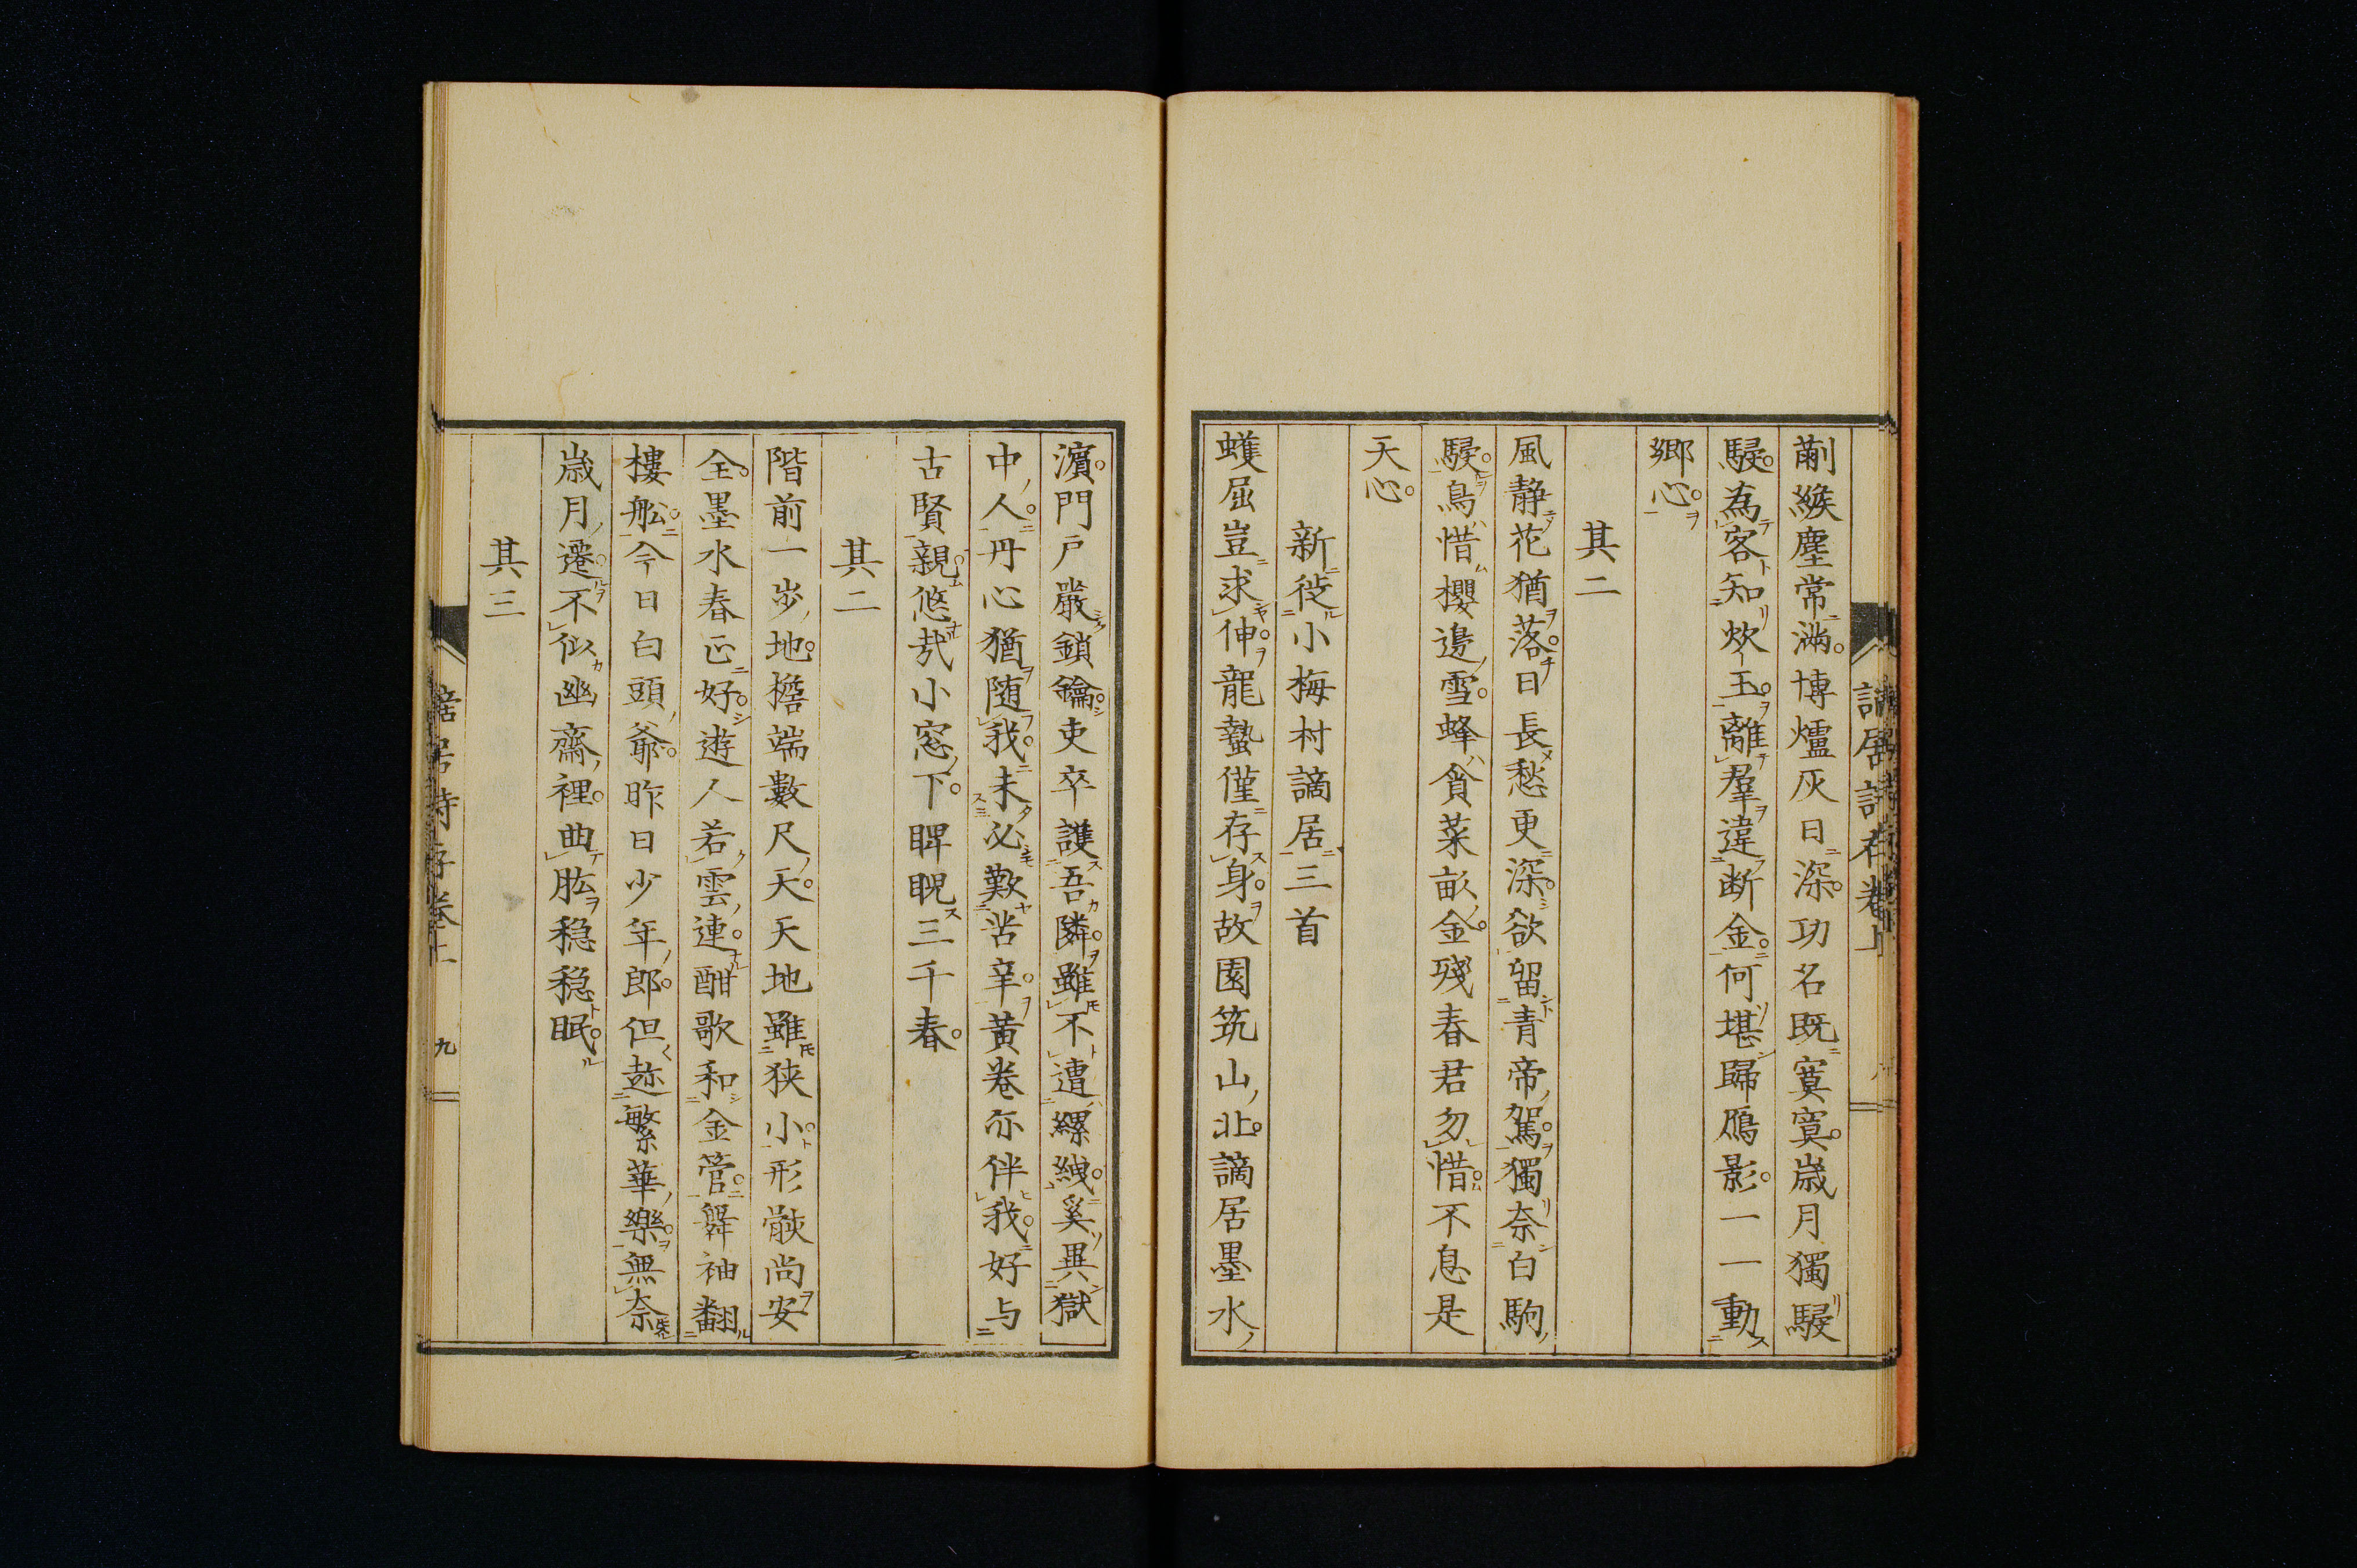 蒯緱塵常滿博爐灰日深功名既寞寞歳月獨駸
駸為客知炊玉離羣違断金何堪歸鴈影一一動
郷心
其二
風静花猶落日長愁更深欲留青帝駕獨奈白駒
駸鳥惜櫻邊雪蜂貪菜畝金殘春君勿惜不息是
天心
新徙小梅村謫居三首
蠖屈豈求伸龍蟄僅存身故園筑山北謫居墨水
濵門戸嚴鎖鑰吏卒護吾隣雖不遭縲絏奚異獄
中人丹心猶随我未必歎苦辛黄巻亦伴我好与
古賢親悠哉小窓下睥睨三千春
其二
階前一歩地檐端數尺天天地雖狹小形骸尚安
全墨水春正好遊人若雲連酣歌和金管舞袖翻
樓舩今日白頭爺昨日少年郎但趂繁華樂無奈
歳月遷不似幽齋裡曲肱穏穏眠
其三
謫居詩存巻上
九